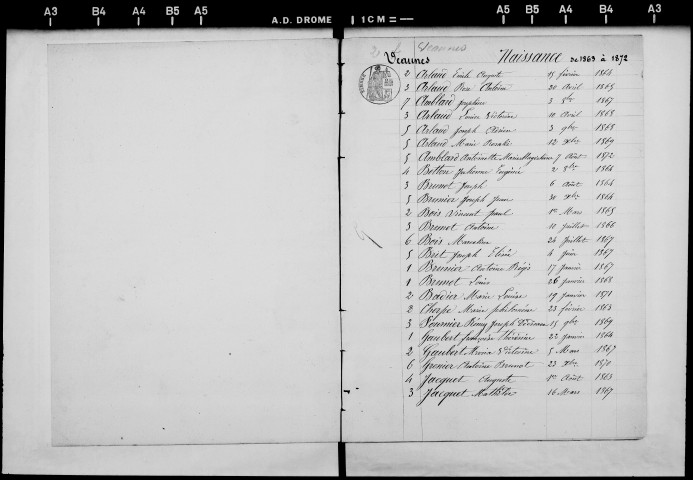 A3 B4 A4 B5 A5 A.D. DROME 1 CM A5 B5 A4 B4 A3
Veaunes
Veaunes Naissance de 1863 à 1872
2 Arlaud Emile Auguste 15 février 1864
3 Arlaud Rose Antoine 20 Avril 1865
7 Amblard Joséphine 3 8bre 1867
3 Arlaud Louise Victorine 10 Avril 1868
5 Arlaud Joseph Adrien 3 9bre 1868
5 Arlaud Marie Rosalie 12 Xbre 1869
5 Amblard Antoinette Marie Magdeleine 7 Août 1872
4 Betton Julienne Eugénie 2 8bre 1864
3 Brunet Joseph 6 Août 1864
5 Brunier Joseph Jean 30 Xbre 1864
2 Bois Vincent Paul 1er Mars 1865
3 Brunet Antoine 10 Juillet 1866
6 Bois Marcelin 24 Juillet 1867
5 Bret Joseph Elisée 4 Juin 1867
1 Brunier Antoine Régis 17 Janvier 1867
1 Brunet Louis 26 Janvier 1868
2 Badier Marie Louise 19 Janvier 1871
2 Cherpe Marie philomène 23 février 1863
3 Fournier Rémy Joseph 15 9bre 1869
1 Gaubert françoise Thérésine 22 Janvier 1864
2 Gaubert Maria Victorine 5 Mars 1867
6 Grenier Antoine Brunot 23 Xbre 1870
4 Jacquet Auguste 1er Août 1863
3 Jacquet Mathilde 16 Mars 1867